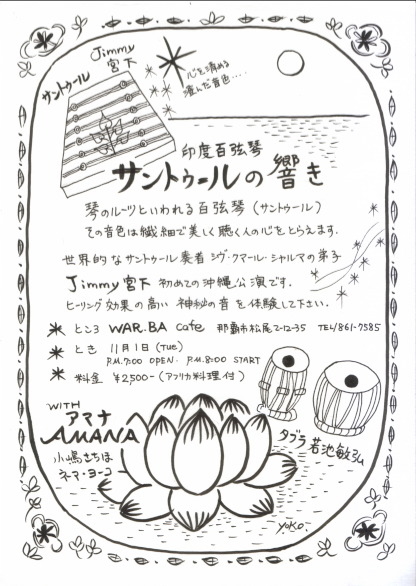 Jimmy
宮下
サントゥール
心を清める
澄んだ音色‥‥
印度百弦琴
サントゥールの響き
琴のルーツといわれる百弦琴(サントゥール)
その音色は繊細で美しく聴く人の心をとらえます.
世界的なサントゥール奏者シヴ・クマール・シャルマの弟子
Jimmy宮下 初めての沖縄公演です.
ヒーリング効果の高い 神秘の音を体験して下さい.
ところ WAR.BA cafe 那覇市松尾2-12-35 TEL/861-7585
とき 11月1日(TUE)
P.M.7:00 OPEN. P.M.8:00 START
料金 ¥2500-(アフリカ料理付)
WITH
アマナ
AMANA
小嶋さちほ
ネマ・ヨーコ
タブラ 若池敏弘
YOKO.